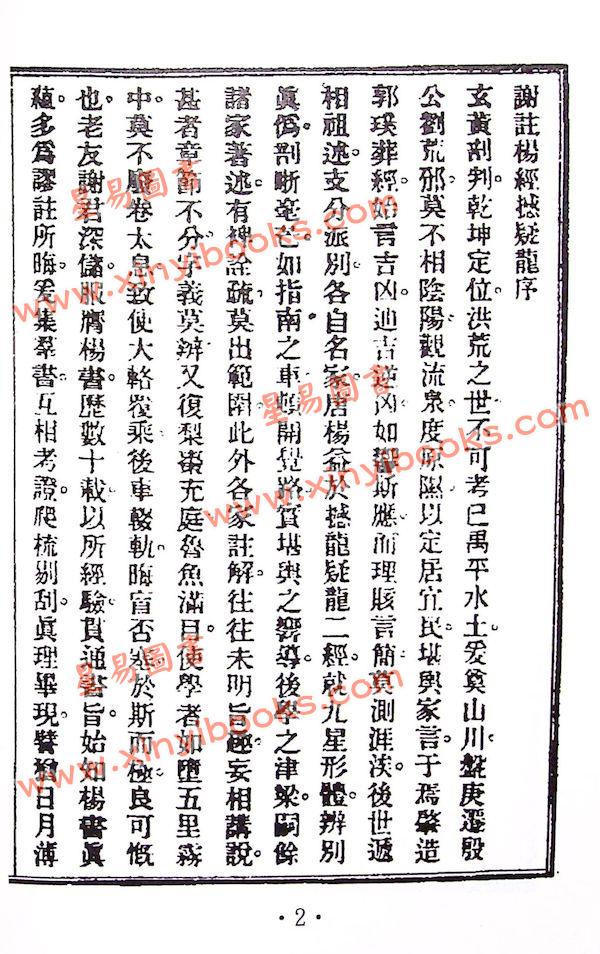 謝註楊經撼疑龍序
玄黃剖判乾坤定位洪荒之世不可考已禹平水土爰奠山川盤庚遷殷
公劉荒邠莫不相陰陽觀流泉度原隰以定居宜民堪輿家言于焉肇造
郭璞葬經始言吉凶迪吉逆凶如響斯應而理賅言簡莫測涯涘後世遞
相祖述支分派別各自名家唐楊益於撼龍疑龍二經就九星形體辨別
眞僞剖晰毫芒如指南之車頓開覺路實堪輿之嚮導後學之津梁嗣餘
諸家著述有裨詮疏莫出範圍此外各家註解往往未明旨趣妄相講說
甚者章節不分字義莫辨又復梨棗充庭魯魚滿目使學者如墮五里霧
中莫不廢卷太息致使大輅覆乘後車輟軌晦盲否塞於斯而極良可慨
也老友謝君深儲服膺楊書歷數十載以所經驗貫通書旨始知楊書眞
蘊多爲謬註所晦爰集羣書互相考證爬梳剔刮眞理畢現譬猶日月薄
星易圖書
www.xinyibooks.com
星易圖書
www.xinyibooks.com
星易圖書
www.xinyibooks.com
·2·